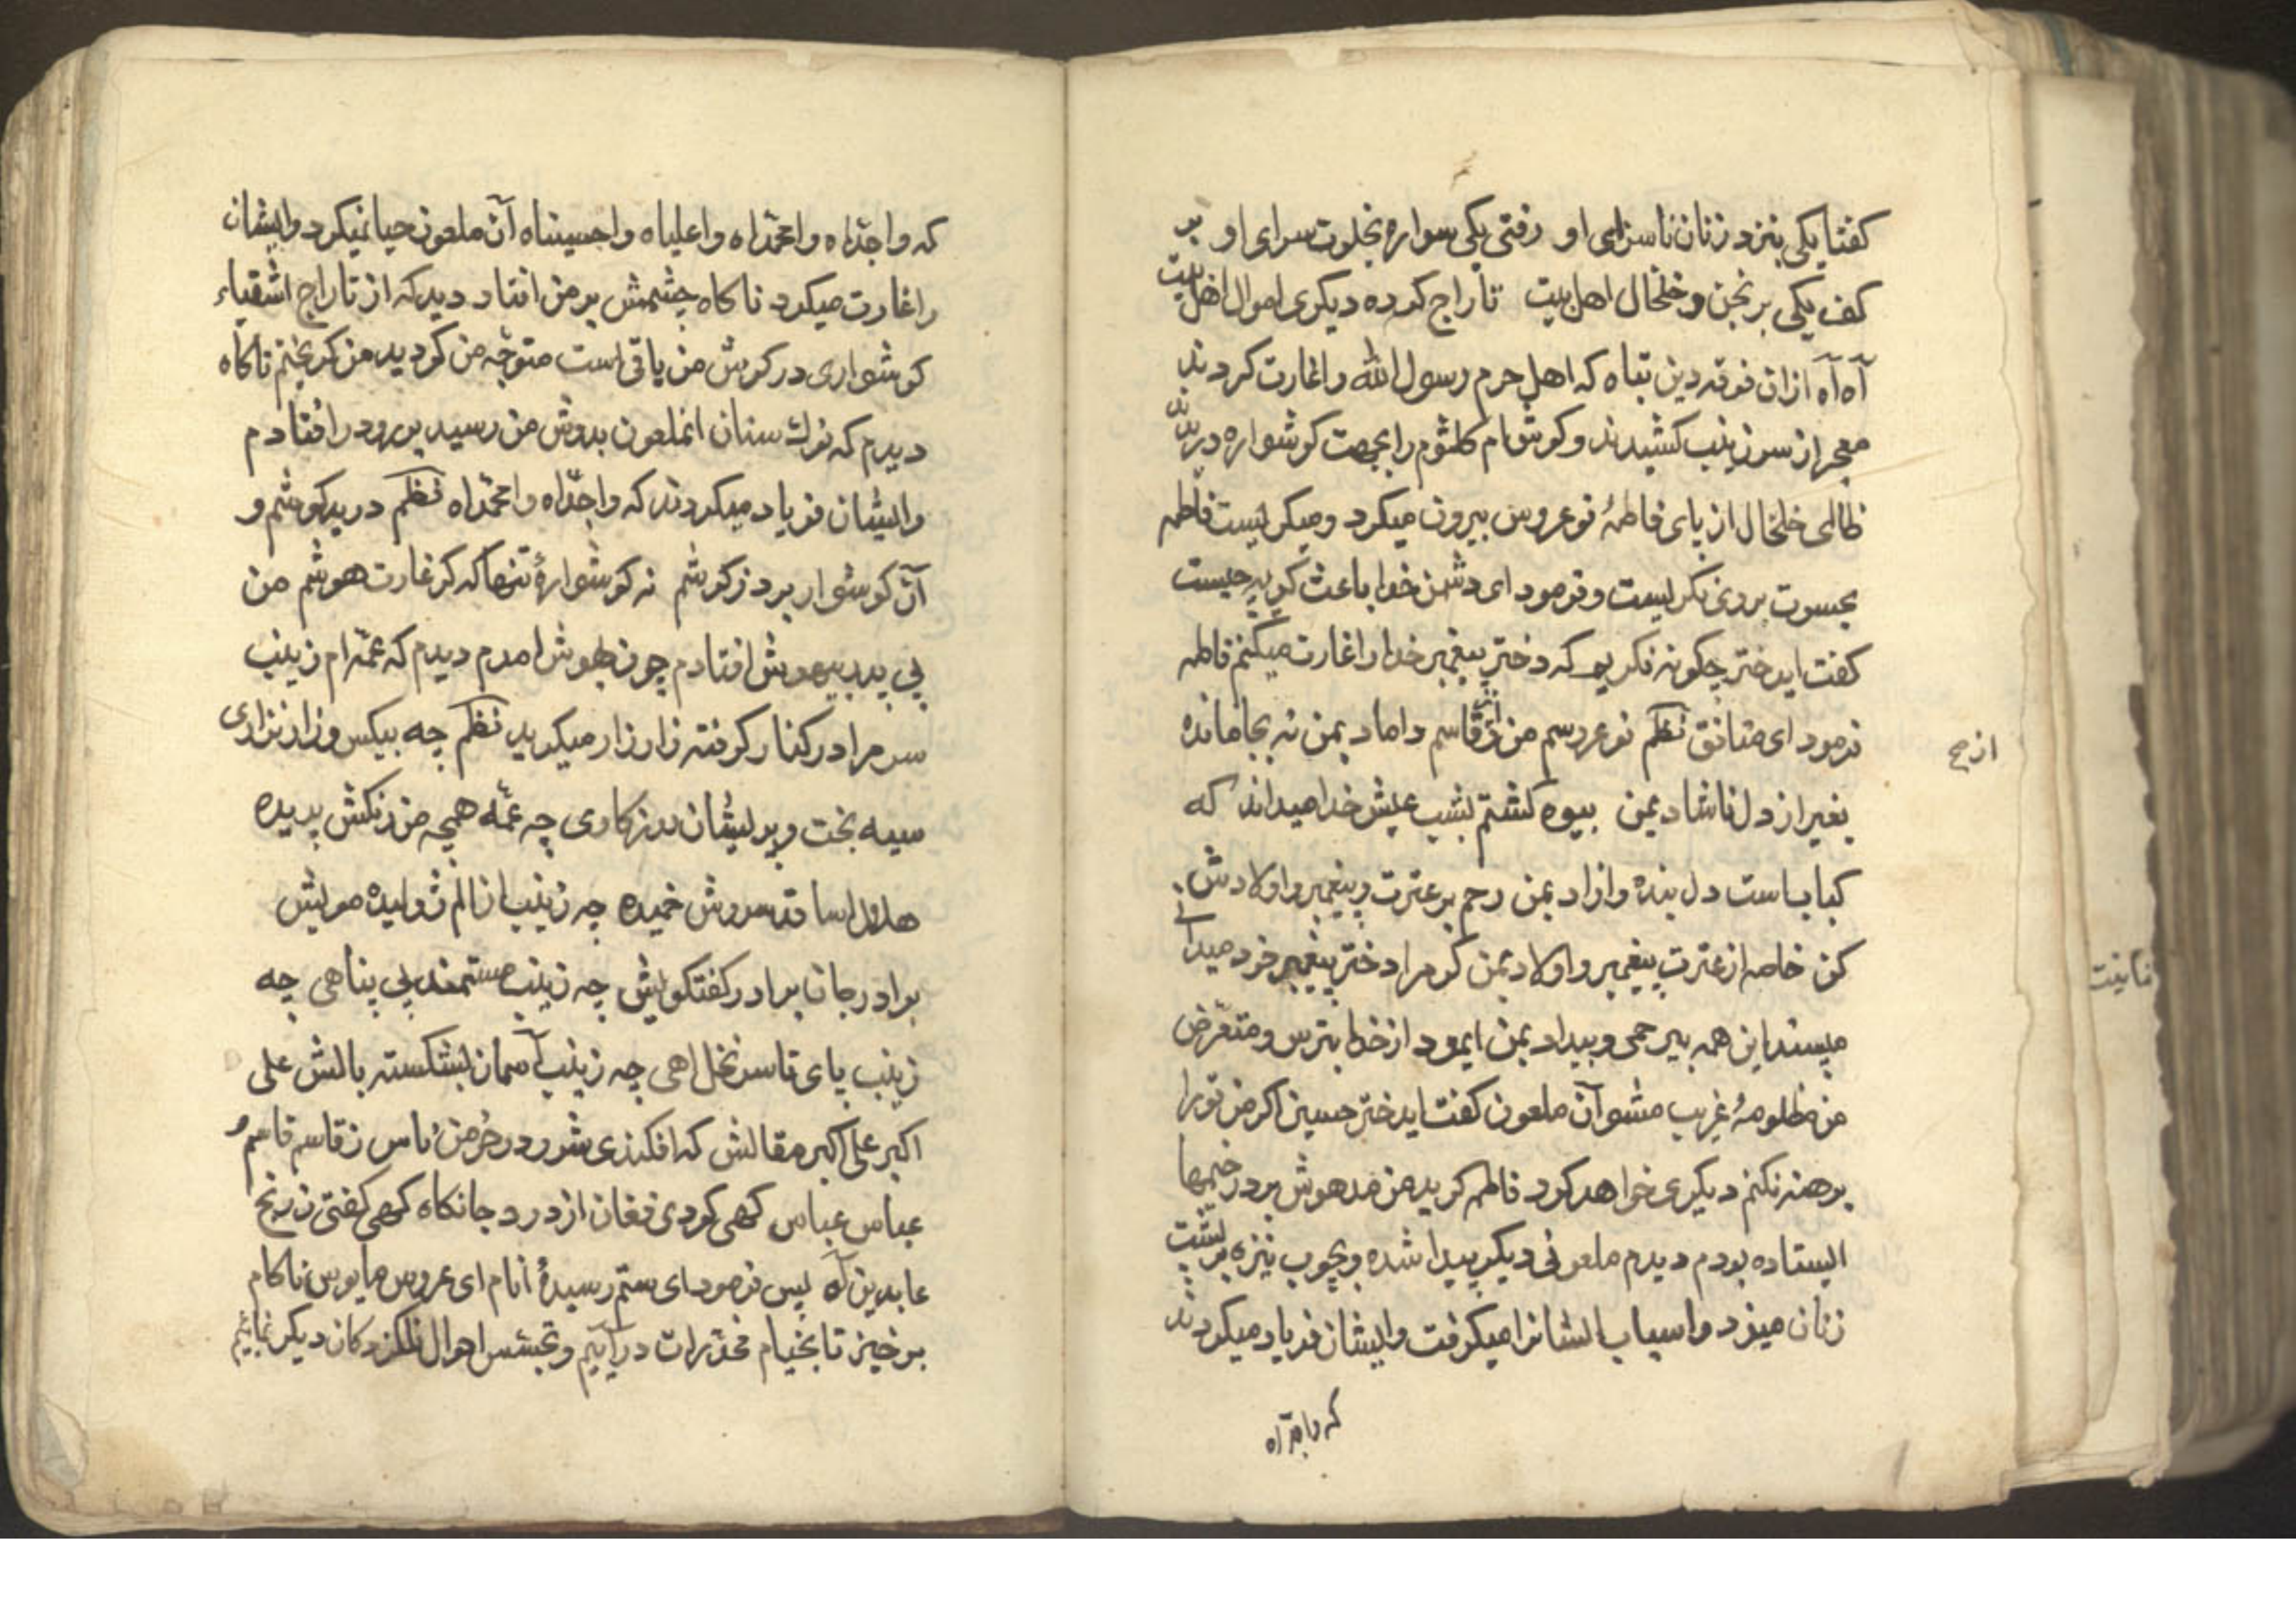 کفتا یکی بنزد زنان ناسزای او رفتی یکی سواره بخلوت سرای او بر
کف یکی برنجن و خلخال اهل بیت تاراج کرده دیکری اموال اهل بیت
آه آه ازان فرقه دین تباه که اهل حرم رسول الله را غارت کردند
معجر از سر زینب کشیدند و کوش ام کلثوم را بجهت کوشواره دریدند
ظالمی خلخال از پای فاطمهٔ نوعروس بیرون میکرد و میکریست فاطمه
بحسرت بروی نکریست و فرمود ای دشمن خدا باعث کریه چیست
کفت ایدختر چکونه نکریم که دختر پیغمبر خدا را غارت میکنم فاطمه
فرمود ای منافق نظم نوعروسم من و از قاسم داماد بمن نه بجا مانده
بغیر از دل ناشاد بمن بیوه کشتم بشب عیش خدا میداند که
کبابست دل بنده و ازاد بمن رحم بر عترت پیغمبر و اولادش
کن خاصه از عترت پیغمبر و اولاد بمن کر مرا دختر پیغمبر خود میدانی
مپسند این همه بیرحمی و بیداد بمن ایمرد از خدا بترس و متعرّض
من مظلومهٔ غریب مشو آن ملعون کفت ایدختر حسین اکر من تو را
برهنه نکنم دیکری خواهد کرد فاطمه کرید من مدهوش بر در خیمها
ایستاده بودم دیدم ملعونی دیکر پیدا شده و بچوب نیزه بر پشت
زنان میزد و اسباب ایشانرا میکرفت و ایشان فریاد میکردند
که واجدّاه
که واجدّاه وامحمّداه واعلیاه واحسیناه آن ملعون حیا نمیکرد و ایشان
را غارت میکرد ناکاه چشمش بر من افتاد دید که از تاراج اشقیاء
کوشواری در کوش من باقی است متوجّه من کردید من کریختم ناکاه
دیدم که نوک سنان انملعون بدوش من رسید بر رو در افتادم
و ایشان فریاد میکردند که واجدّاه وامحمّداه نظم درید کوشم و
آن کوشوار برد ز کوشم نه کوشوارهٔ تنها که کرد غارت هوشم من
بی پدر بیهوش افتادم چون بهوش امدم دیدم که عمّه‌ام زینب
سر مرا در کنار کرفته زار زار میکرید نظم چه بیکس و زار نزاری
سیه بخت و پریشان روزکاری چه عمّه همچه من رنکش پریده
هلال اسا قد سروش خمیده چه زینب از الم ژولیده مویش
برادر جان برادر کفتکویش چه زینب مستمند بی پناهی چه
زینب پای تا سر نخل اهی چه زینب آسمان بشکسته بالش علی
اکبر علی اکبر مقالش که افکندی شرر در خرمن ناس ز قاسم قاسم و
عباس عباس کهی کردی فغان از درد جانکاه کهی کفتی ز رنج
عابدین آه پس فرمود ای ستم رسیدهٔ انام ای عروس مایوس ناکام
برخیز تا بخیام مخدّرات درآییم و تجسّس احوال دیکر نمائیم
از صح